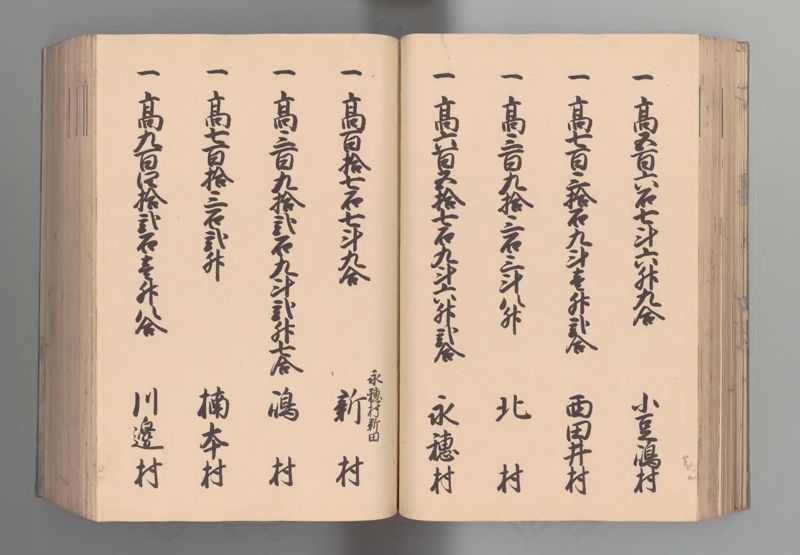 一 高五百六石七斗六升九合 小豆嶋村
一 高七百弐拾石九斗壱升弐合 西田井村
一 高三百九拾三石三斗八升 北村
一 高六百五拾七石九斗六升弐合 永穂村
一 高百拾七石七斗九合 永穂村新田 新村
一 高三百九拾弐石九斗弐升七合 嶋村
一 高七百拾三石弐升 楠本村
一 高九百四拾弐石壱升八合 川邊村